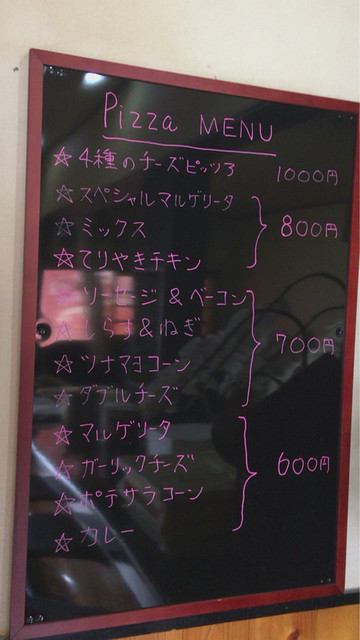 Pizza MENU
☆4種のチーズピッツァ 1000円
☆スペシャルマルゲリータ
☆ミックス 800円
☆てりやきチキン
☆ソーセージ&ベーコン
☆しらす&ねぎ 700円
☆ツナマヨコーン
☆ダブルチーズ
☆マルゲリータ
☆ガーリックチーズ 600円
☆ポテサラコーン
☆カレー